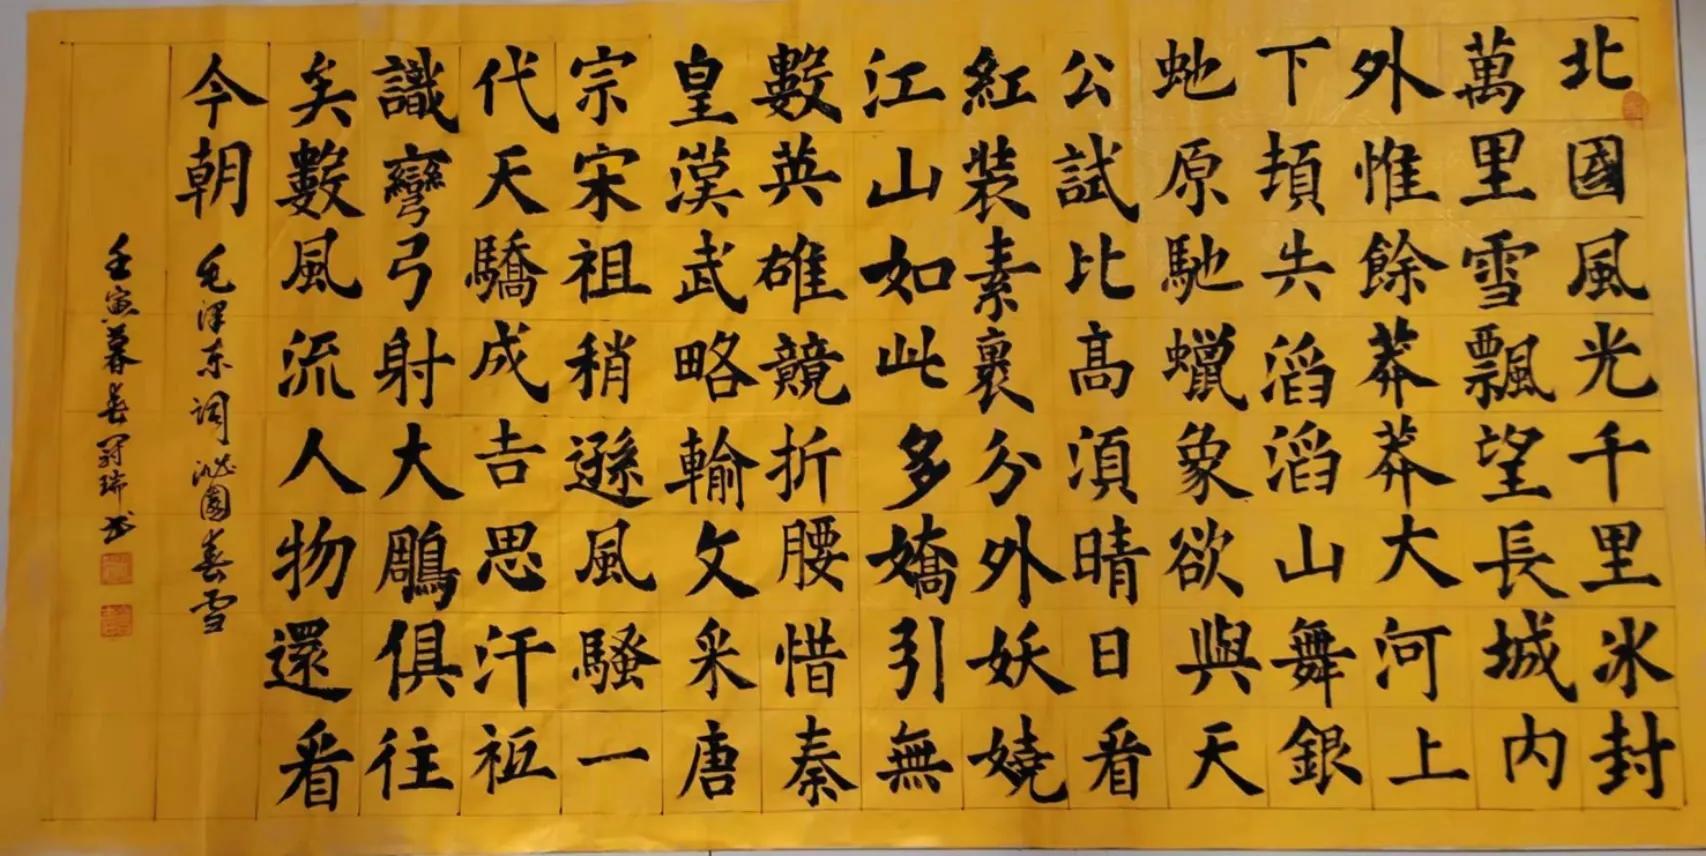 北國風光千里冰封
萬里雪飄望長城内
外惟餘莽莽大河上
下頓失滔滔山舞銀
虵原馳蠟象欲與天
公試比髙須晴日看
紅裝素裹分外妖嬈
江山如此多嬌引無
數英雄競折腰惜秦
皇漢武略輸文采唐
宗宋祖稍遜風騷一
代天驕成吉思汗祗
識彎弓射大鵰俱往
矣數風流人物還看
今朝 毛澤东词沁園春雪
壬寅暮春冠瑞书